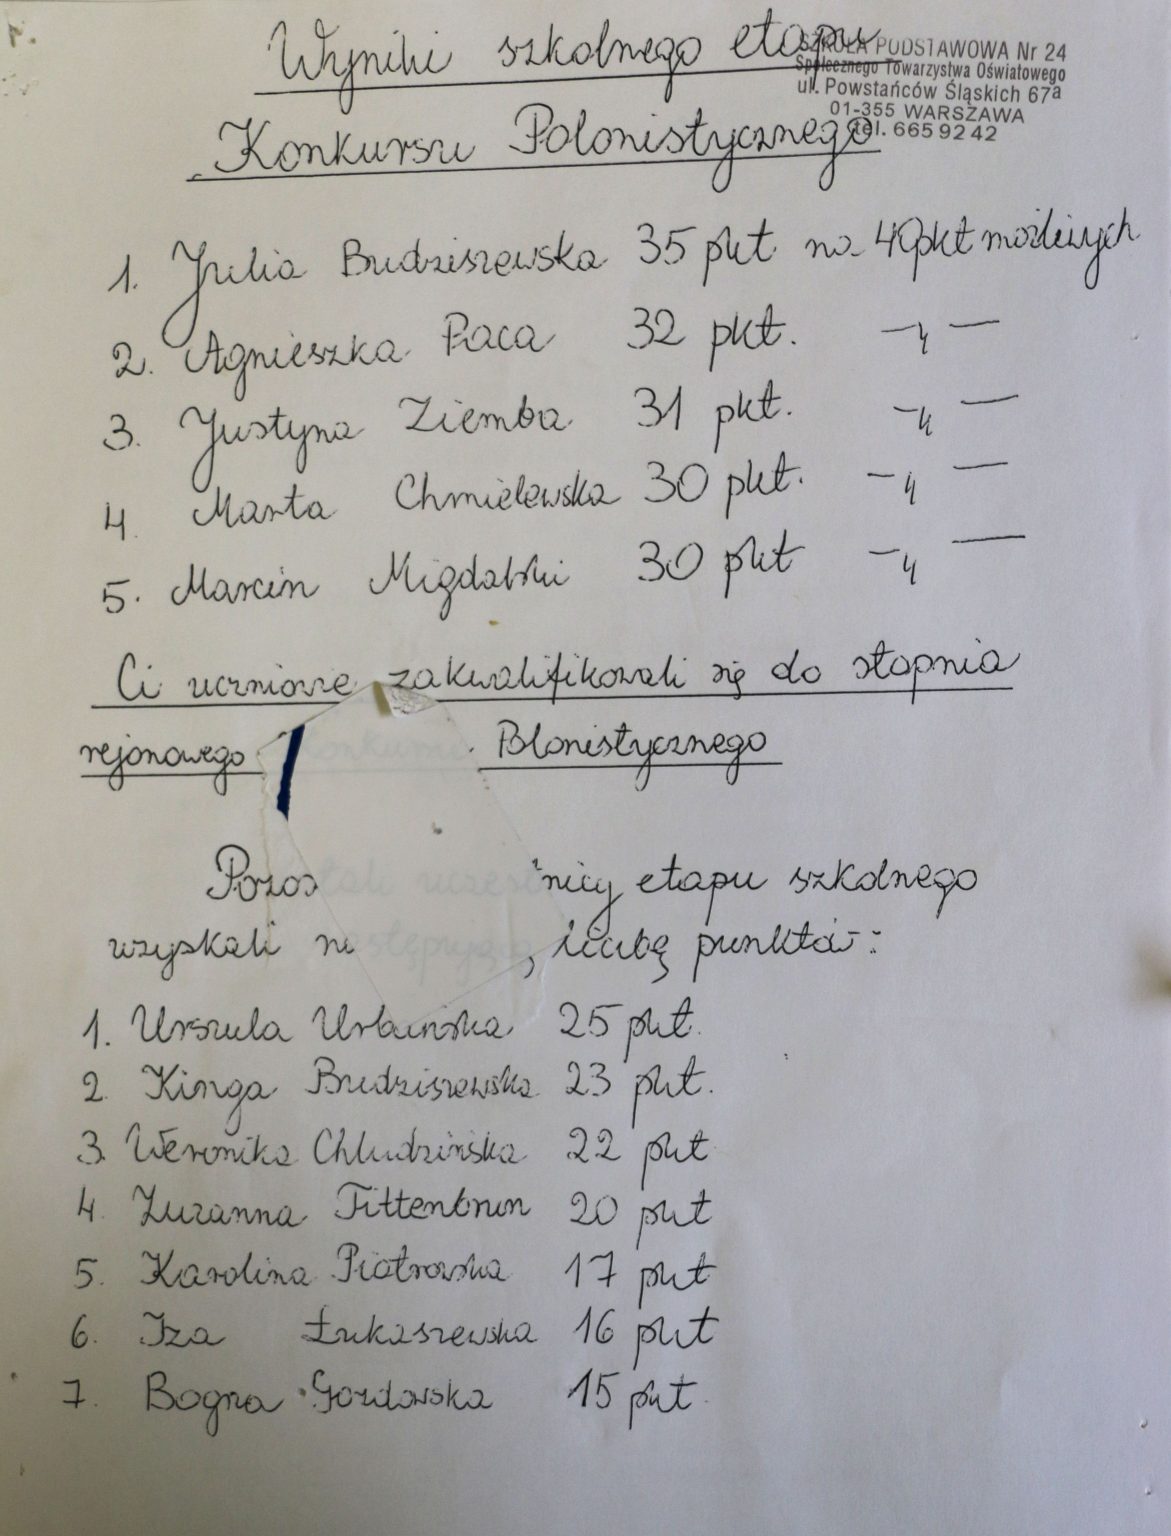 Wyniki szkolnego etapu
Konkursu Polonistycznego
SZKOŁA PODSTAWOWA Nr 24
Społecznego Towarzystwa Oświatowego
ul. Powstańców Śląskich 67a
01-355 WARSZAWA
tel. 665 92 42
1. Julia Budziszewska 35 pkt na 40pkt możliwych
2. Agnieszka Paca 32 pkt. —〃—
3. Justyna Ziemba 31 pkt. —〃—
4. Marta Chmielewska 30 pkt. —〃—
5. Marcin Migdalski 30 pkt —〃—
Ci uczniowie zakwalifikowali się do stopnia
rejonowego Konkursu Polonistycznego
Pozostali uczestnicy etapu szkolnego
uzyskali następującą liczbę punktów:
1. Urszula Urbańska 25 pkt.
2. Kinga Budziszewska 23 pkt.
3. Weronika Chludzińska 22 pkt
4. Zuzanna Tittenbrun 20 pkt
5. Karolina Piotrowska 17 pkt
6. Iza Łukaszewska 16 pkt
7. Bogna Gozdowska 15 pkt.